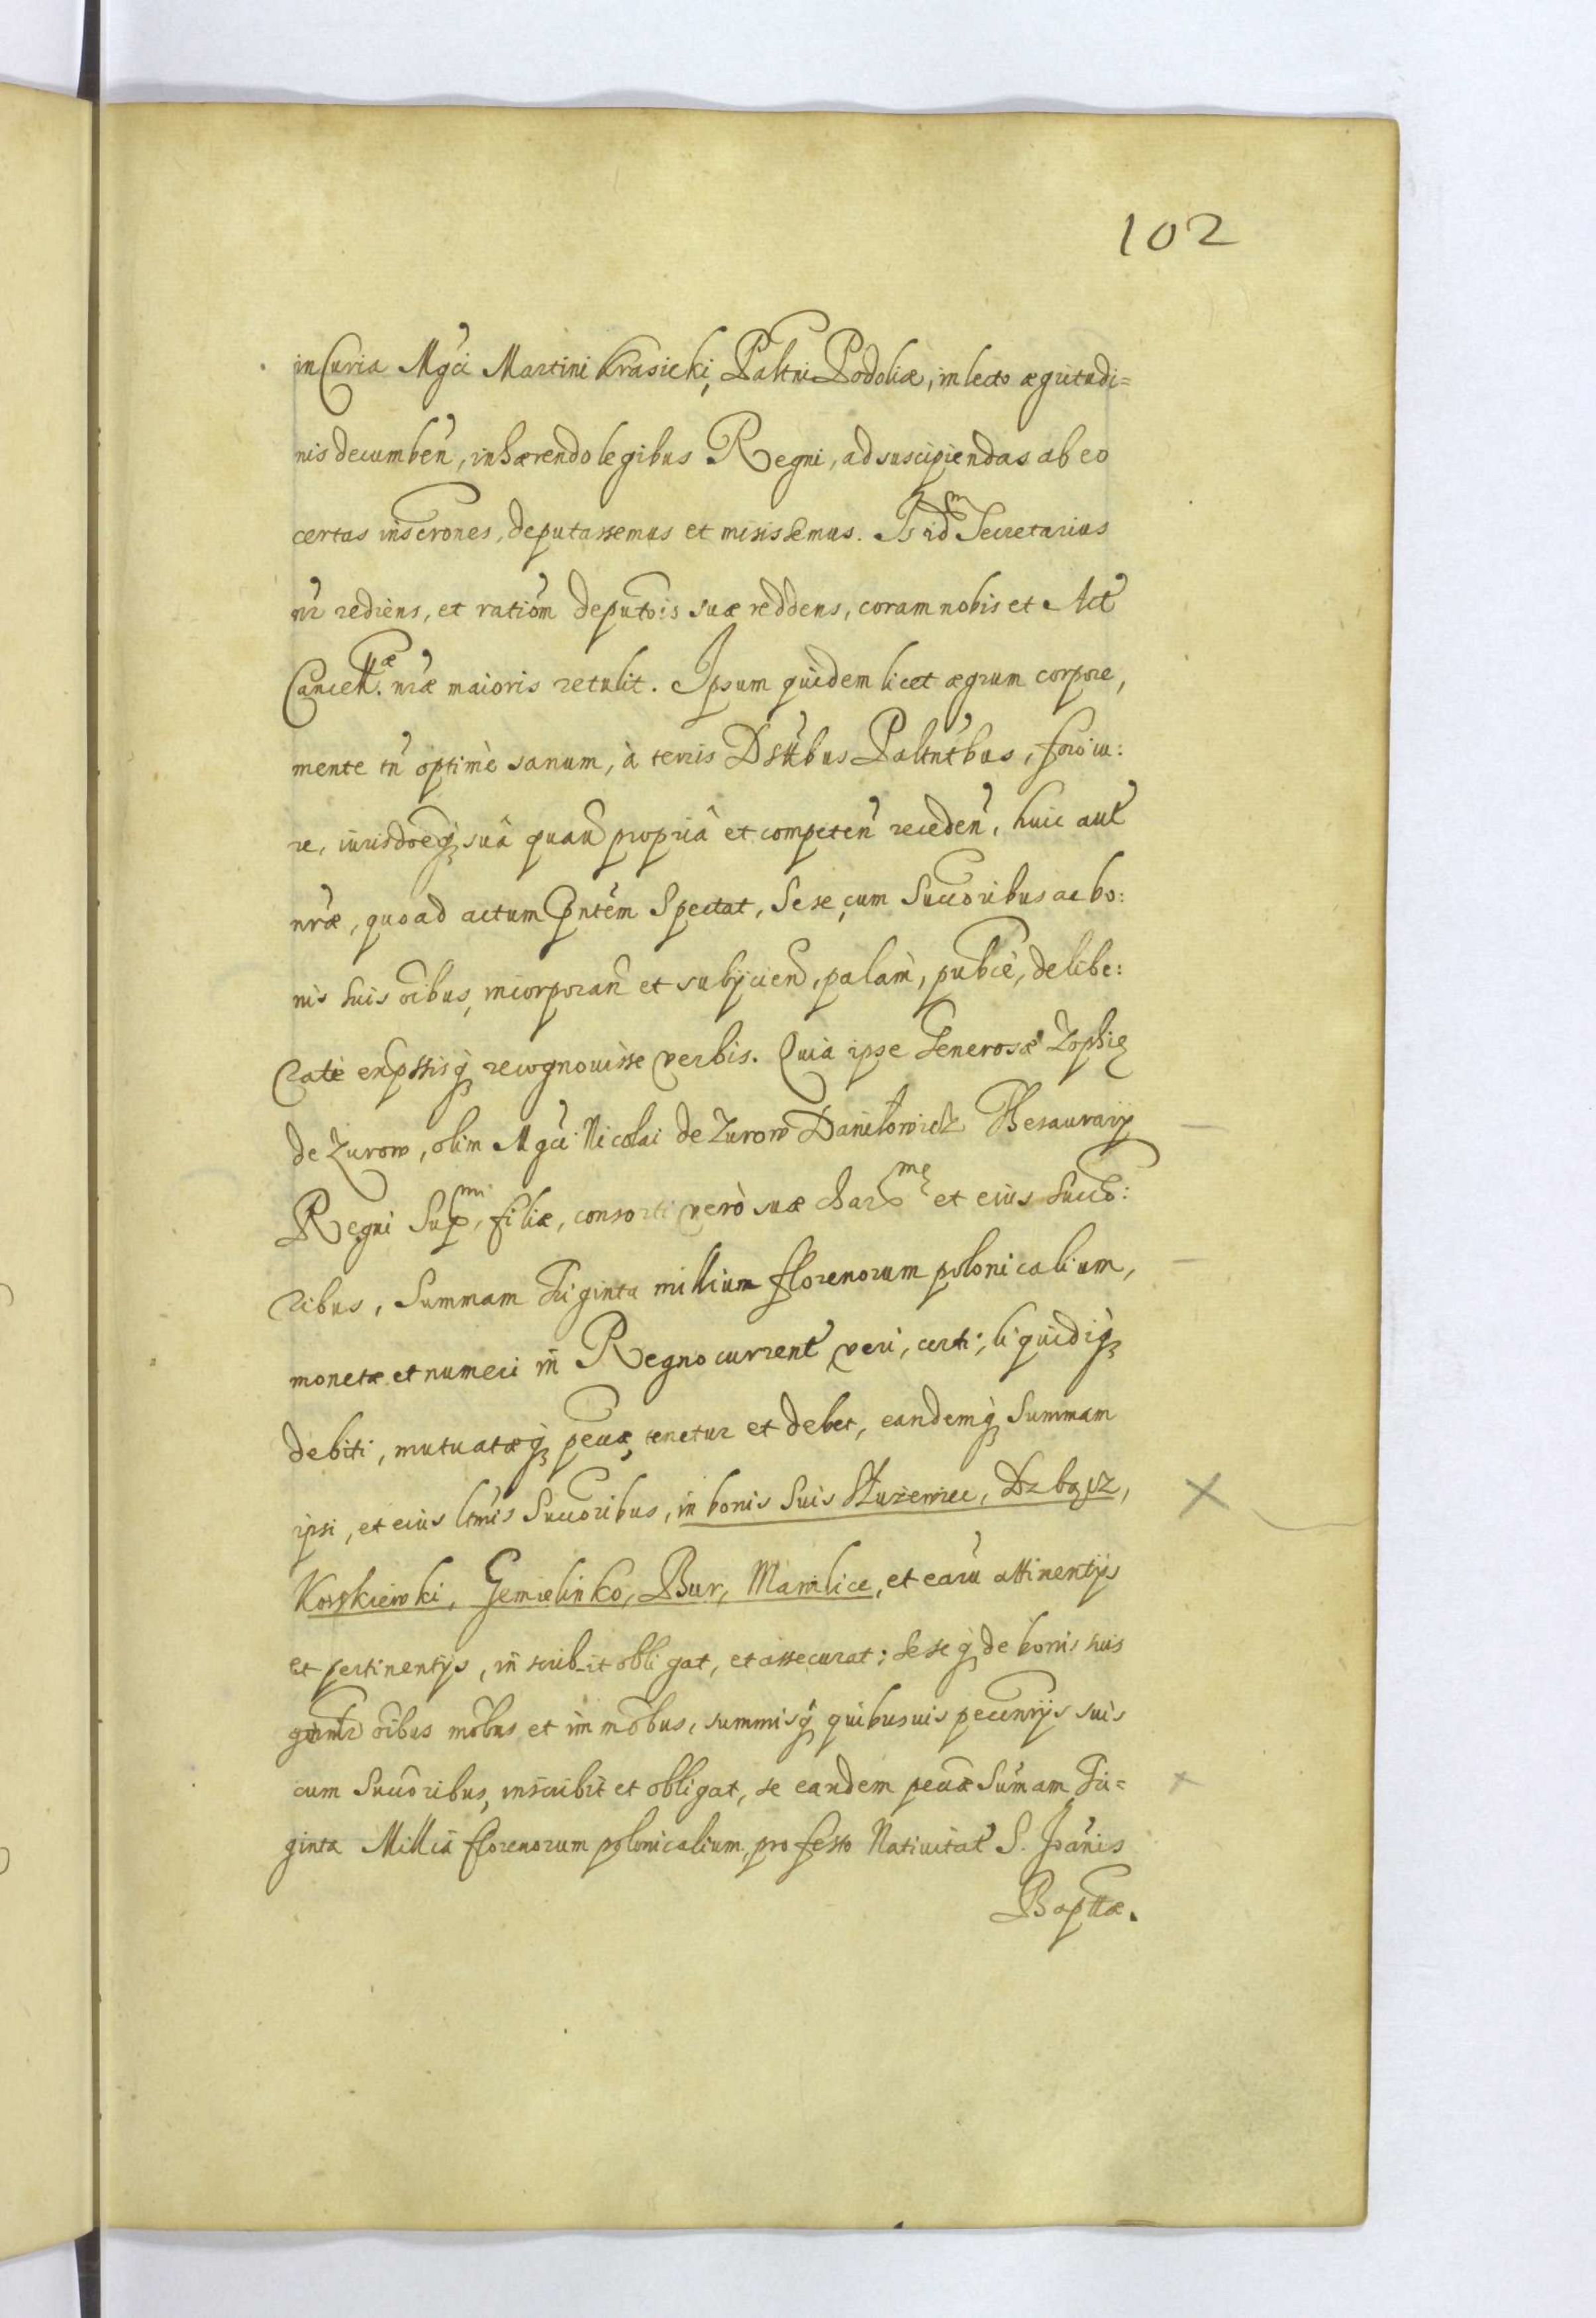 102
in Curia Mgci Martini Krasicki, Paltni Podoliæ, in lecto ægritudi=
nis decumben, inhærendo legibus Regni, ad suscipiendas ab eo
certas inscrones, deputassemus et misissemus. Is id Secretarius
nr rediens, et ration deputois suæ reddens, coram nobis et Act
Cancell.æ nræ maioris retulit. Ipsum quidem licet ægrum corpore,
mente tn optimè sanum, à terris Dsttbus Paltntbus, foro iu:
re, iurisdoeq suâ quau propriâ et competen receden, huic aut
nræ, quo ad actum pntem Spectat, Sese cum Succoribus ac bo:
nis suis oibus, incorporan et subijcien, palàm, publcè, delibe:
ratè expssisq recognouisse verbis. Quia ipse Generosæ Zophię
de Zurow, olim Mgci Nicolai de Zurow Daniłowicz Thesaurarij
Regni Supmi, filiæ, consorti verò suæ charmę et eius Succo:
ribus, Summam Triginta millium florenorum polonicalium,
monetæ et numeri in Regno current, veri, certi, liquidiq
debiti, mutuatæq pecuæ, tenetur et debet, eandemq Summam
ipsi, et eius ltmis Succoribus, in bonis Suis Służewiec, Dzbąsz,
Korskiewki, Gemielinko, Bur, Mamlice, et earu attinentijs
et pertinentijs, inscribit obligat, et assecurat; Seseq de bonis suis
gnantr oibus mobus et immobus, summisq quibusuis pecunijs suis
cum Succoribus, inscribit et obligat, se eandem pecuæ Sumam Tri=
ginta Milliu florenorum polonicalium, pro festo Natiuitat S. Joanis
Bapttæ.